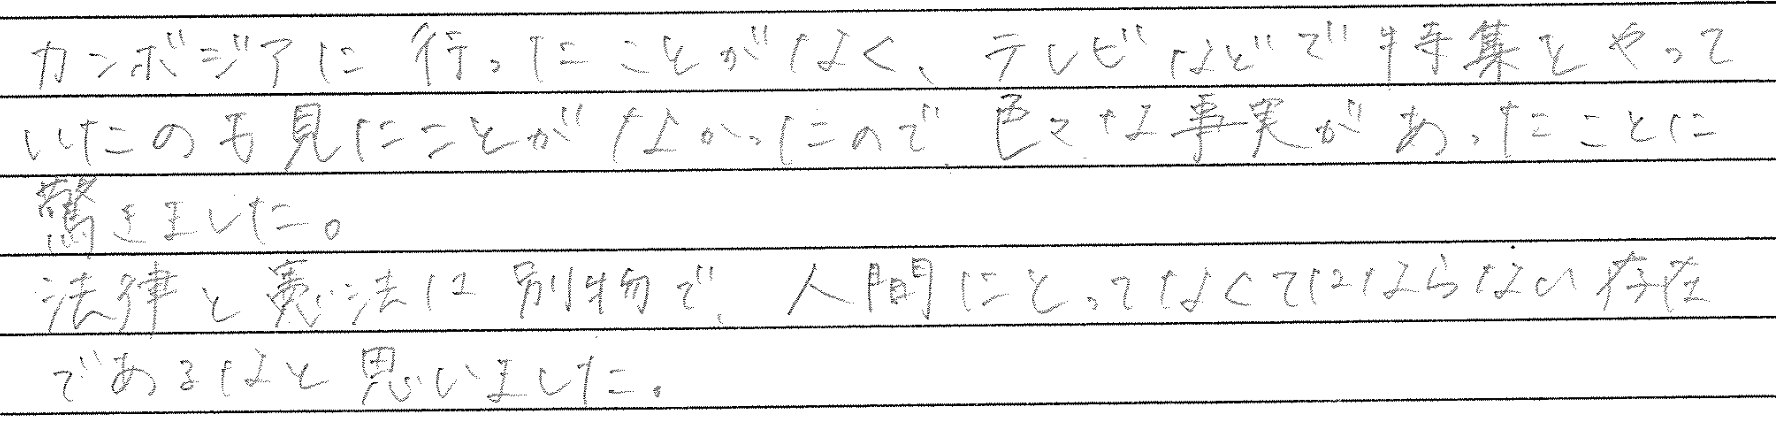 カンボジアに行ったことがなく、テレビなどで特集をやって
いたのも見たことがなかったので、色々な事実があったことに
驚きました。
法律と憲法は別物で、人間にとってなくてはならない存在
であるなと思いました。